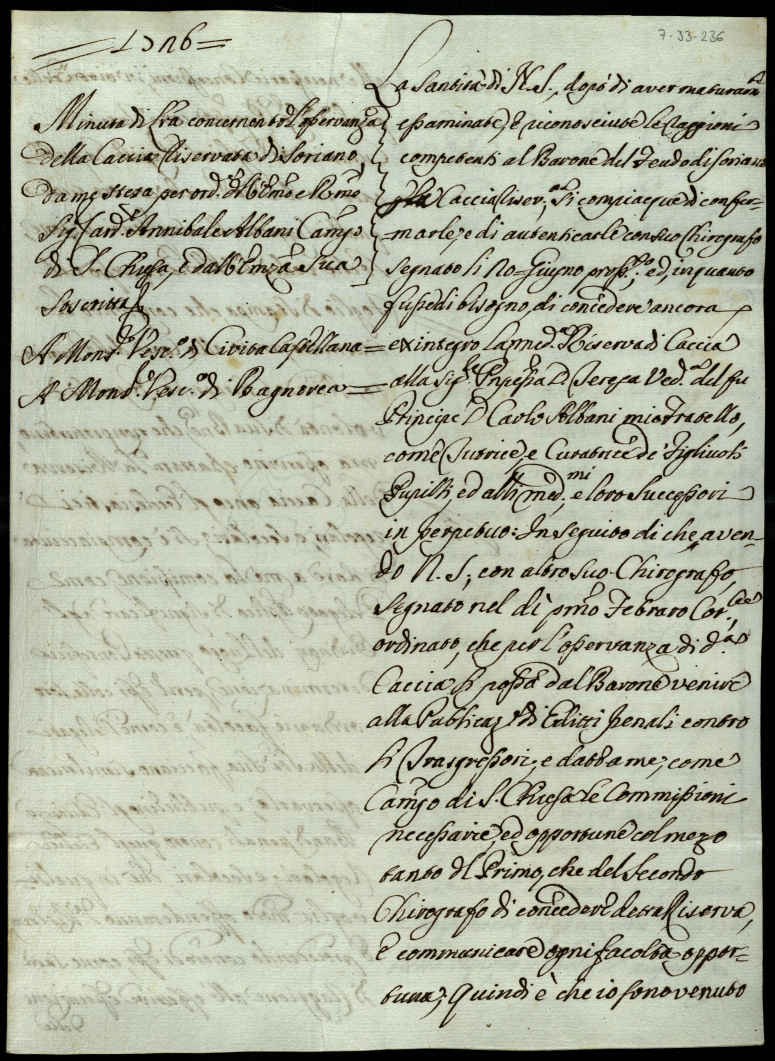 =1726=
7-33-236
Minuta di Lra concernente l'osservanza
della Caccia Riservata di Soriano,
da me stesa per ord.e dell'Emo e Rmo
Sig. Card.e Annibale Albani Camgo
di S. Chiesa, e dall'Emza Sua
Soscritta
A Mons.r Vesc.o di Civita Castellana=
A Mons.r Vesc.o di Bagnorea=
La Santità di N. S., dopò di aver maturamte
essaminate, e riconosciute le Raggioni
competenti al Barone del Feudo di Soriano
Caccia Riser.ta, si compiacque di confer-
marle, e di autenticarle con suo Chirografo
segnato li 20 Giugno pross.o, ed, in quanto
fusse di bisogno, di concedere ancora
ex integro la med.a Riserva di Caccia
alla Sig.ra Pnpessa D. Teresa Ved.a del fu
Principe D. Carlo Albani mio Fratello,
come Tutrice, e Curatrice de' Figliuoli
Pupilli, ed alli med.mi e loro Successori
in perpetuo: In seguito di che, aven-
do N. S., con altro suo Chirografo,
segnato nel dì pmo Febraro Cor.te
ordinato, che per l'osservanza di d.a
Caccia si possa dal Barone venire
alla Publicaz.e di Editti penali contro
li Trasgressori, e dattame, come
Camgo di S. Chiesa le Commissioni
necessarie, ed opportune col mezo
tanto del Primo, che del Secondo
Chirografo di concedere detta Riserva,
e communicare ogni facoltà oppor-
tuna; Quindi è che io sono venuto